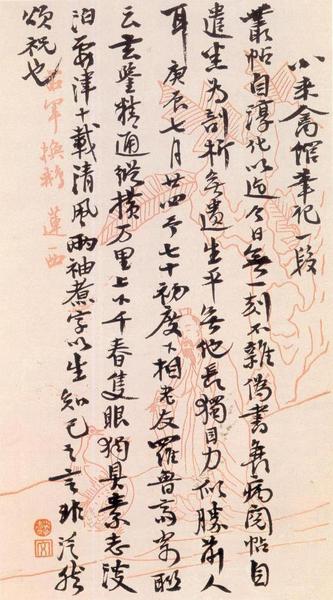 小来禽馆筆记一段
叢帖自淳化以迄今日無一刻不雜偽書病閱帖自
遣坐为剖析無遺生平無他長獨目力似勝前人
耳庚辰七月廿四予七十初度下相老友羅魯齋寄聯
云玄鑒精通縱橫万里上下千春隻眼獨具素志淡
泊要津十載清風兩袖煮字以生知己之言非泛然
頌祝也
右軍換鵝 蓮西